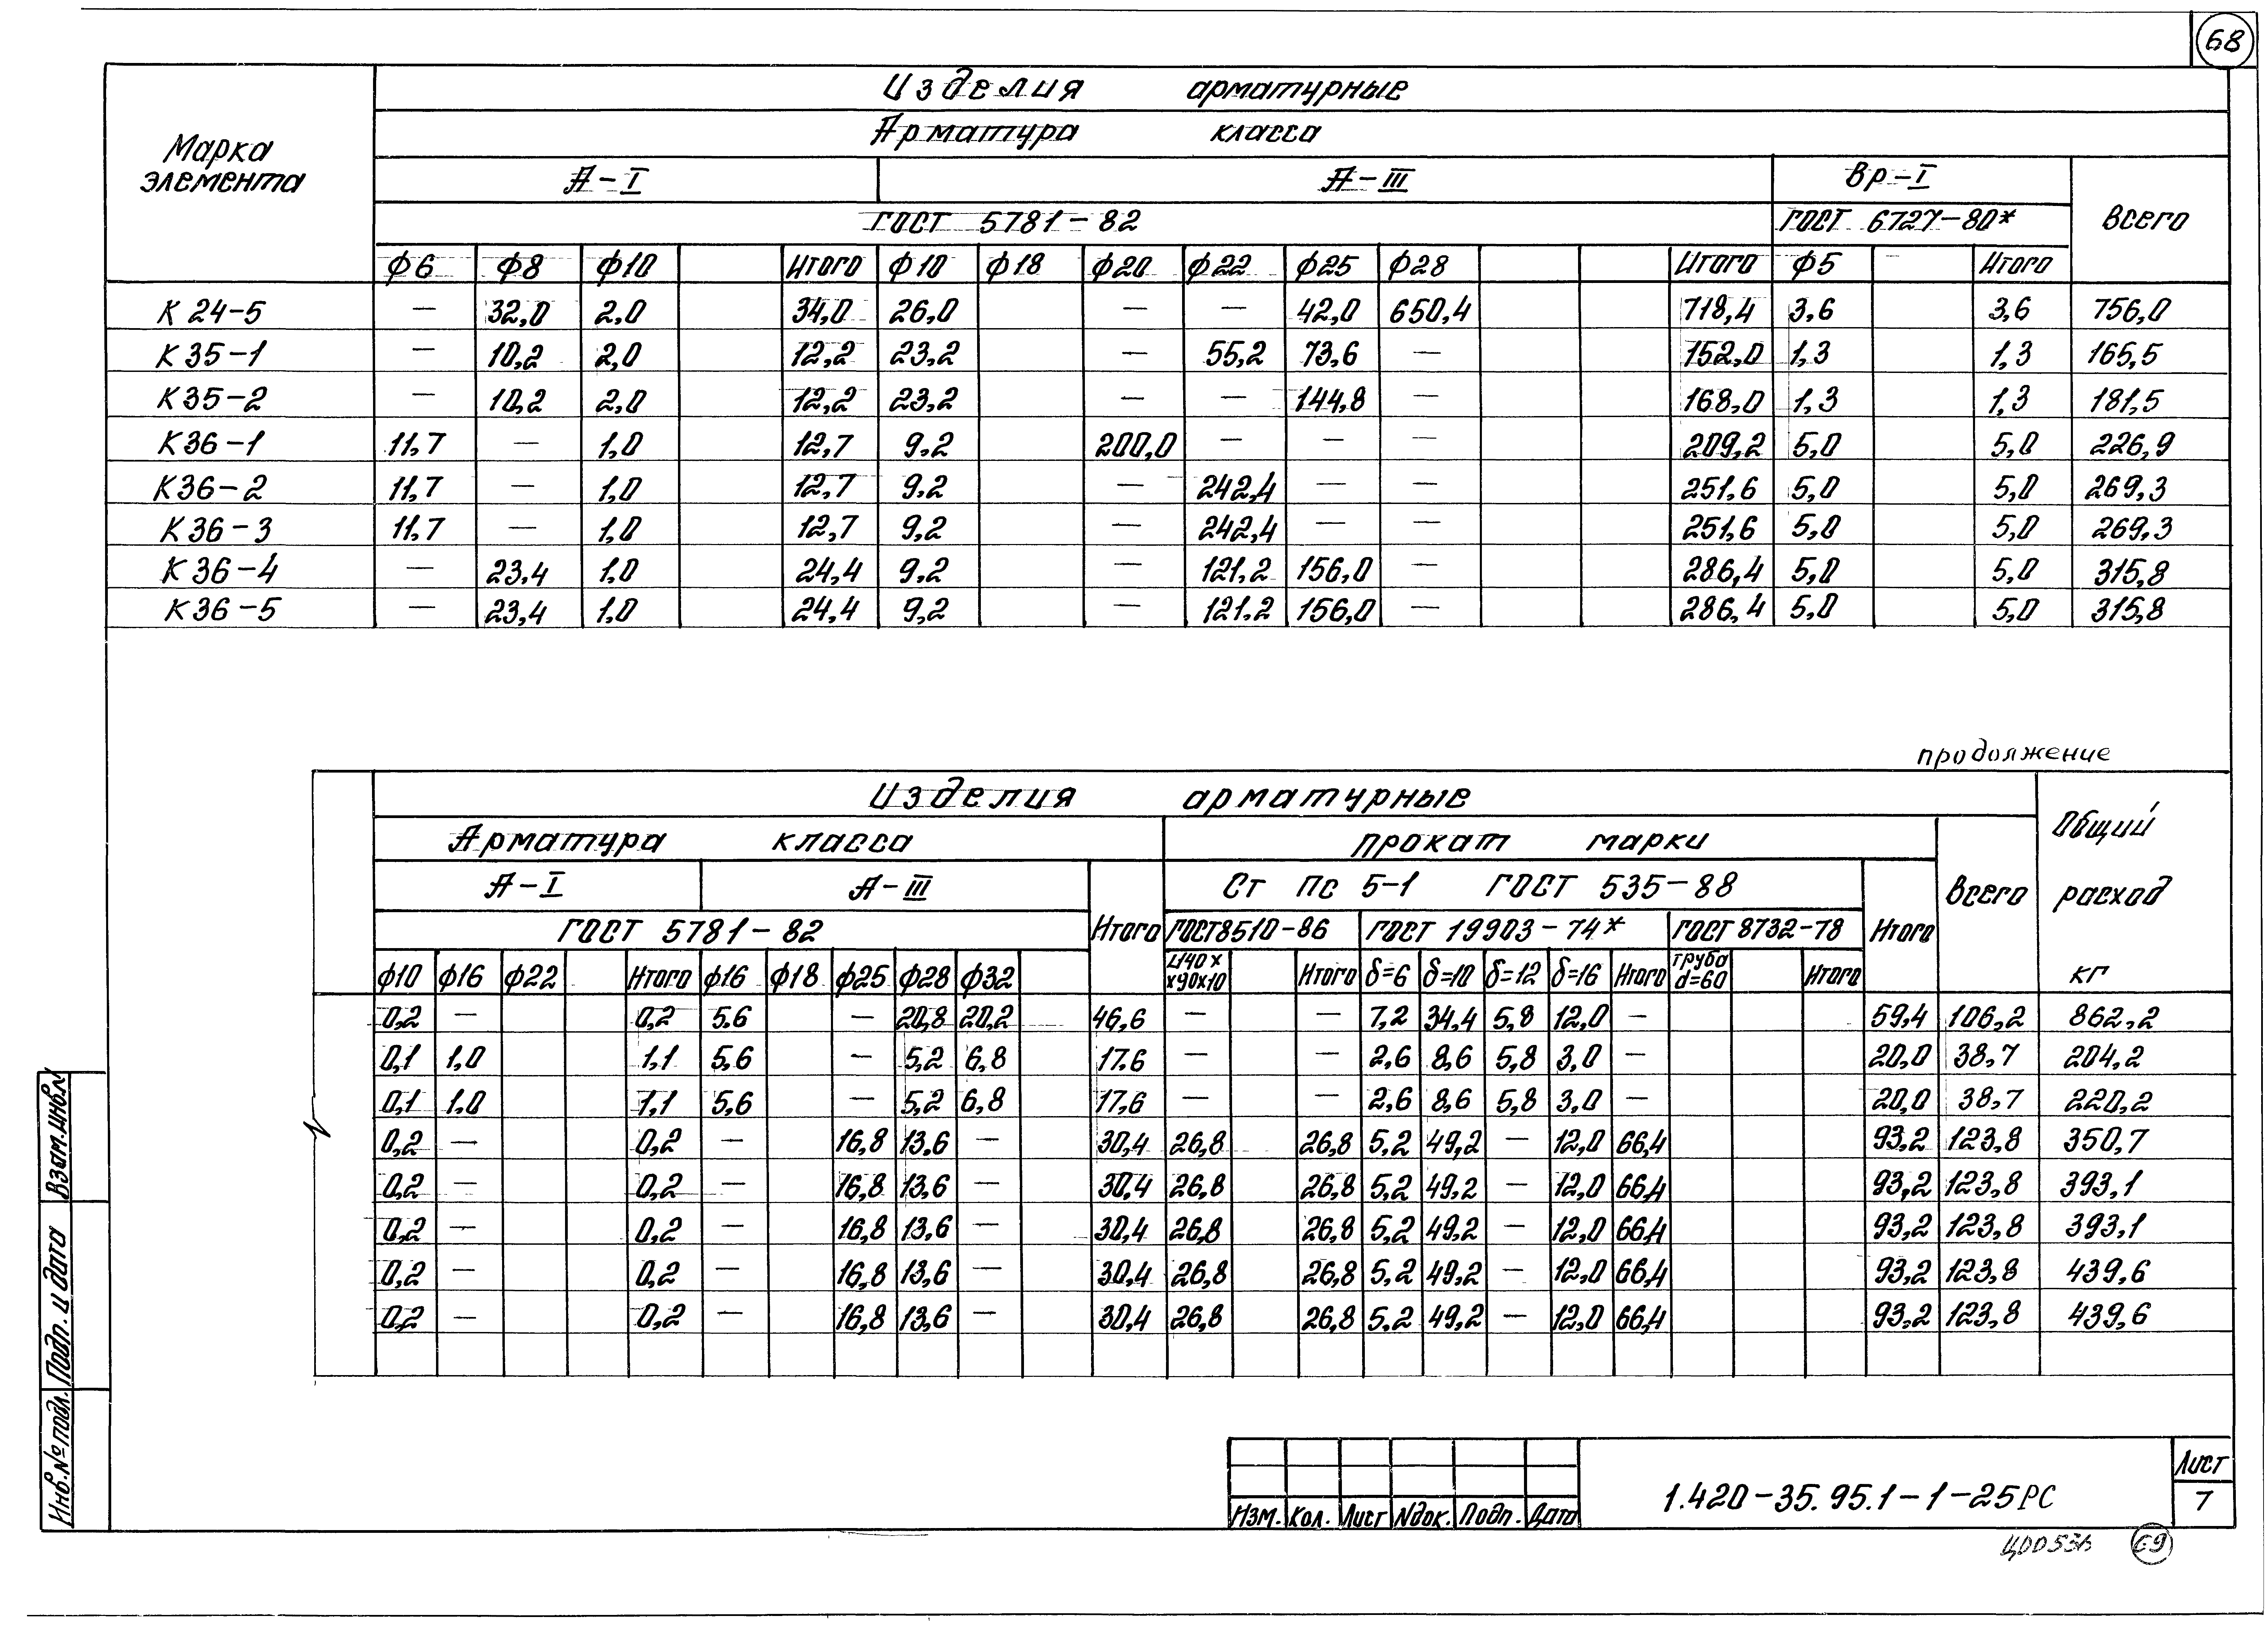 68
Марка элемента
Изделия арматурные
Арматура класса
А-I А-III Вр-I Всего
ГОСТ 5781-82 ГОСТ 6727-80*
ф6 ф8 ф10 Итого ф10 ф18 ф20 ф22 ф25 ф28 Итого ф5 — Итого
К 24-5 — 32,0 2,0 34,0 26,0 — — 42,0 650,4 718,4 3,6 3,6 756,0
К 35-1 — 10,2 2,0 12,2 23,2 — 55,2 73,6 — 152,0 1,3 1,3 165,5
К 35-2 — 10,2 2,0 12,2 23,2 — — 144,8 — 168,0 1,3 1,3 181,5
К 36-1 11,7 — 1,0 12,7 9,2 200,0 — — — 209,2 5,0 5,0 226,9
К 36-2 11,7 — 1,0 12,7 9,2 — 242,4 — — 251,6 5,0 5,0 269,3
К 36-3 11,7 — 1,0 12,7 9,2 — 242,4 — — 251,6 5,0 5,0 269,3
К 36-4 — 23,4 1,0 24,4 9,2 — 121,2 156,0 — 286,4 5,0 5,0 315,8
К 36-5 — 23,4 1,0 24,4 9,2 — 121,2 156,0 — 286,4 5,0 5,0 315,8
продолжение
Изделия арматурные Общий расход кг
Арматура класса прокат марки Всего
А-I А-III Итого Ст Пс 5-1 ГОСТ 535-88 Итого
ГОСТ 5781-82 ГОСТ 8510-86 ГОСТ 19903-74* ГОСТ 8732-78
ф10 ф16 ф22 Итого ф16 ф18 ф25 ф28 ф32 L140х х90х10 Итого δ=6 δ=10 δ=12 δ=16 Итого труба d=60 Итого
0,2 — 0,2 5.6 — 20,8 20,2 46,6 — — 7,2 34,4 5,8 12,0 — 59,4 106,2 862,2
0,1 1,0 1,1 5,6 — 5,2 6,8 17,6 — — 2,6 8,6 5,8 3,0 — 20,0 38,7 204,2
0,1 1,0 1,1 5,6 — 5,2 6,8 17,6 — — 2,6 8,6 5,8 3,0 — 20,0 38,7 220,2
0,2 — 0,2 — 16,8 13,6 — 30,4 26,8 26,8 5,2 49,2 — 12,0 66,4 93,2 123,8 350,7
0,2 — 0,2 — 16,8 13,6 — 30,4 26,8 26,8 5,2 49,2 — 12,0 66,4 93,2 123,8 393,1
0,2 — 0,2 — 16,8 13,6 — 30,4 26,8 26,8 5,2 49,2 — 12,0 66,4 93,2 123,8 393,1
0,2 — 0,2 — 16,8 13,6 — 30,4 26,8 26,8 5,2 49,2 — 12,0 66,4 93,2 123,8 439,6
0,2 — 0,2 — 16,8 13,6 — 30,4 26,8 26,8 5,2 49,2 — 12,0 66,4 93,2 123,8 439,6
Взам.инв.N
Подп. и дата
Инв.№ подл.
Изм. Кол. Лист Nдок. Подп. Дата
1.420-35.95.1-1-25РС
Лист
7
69